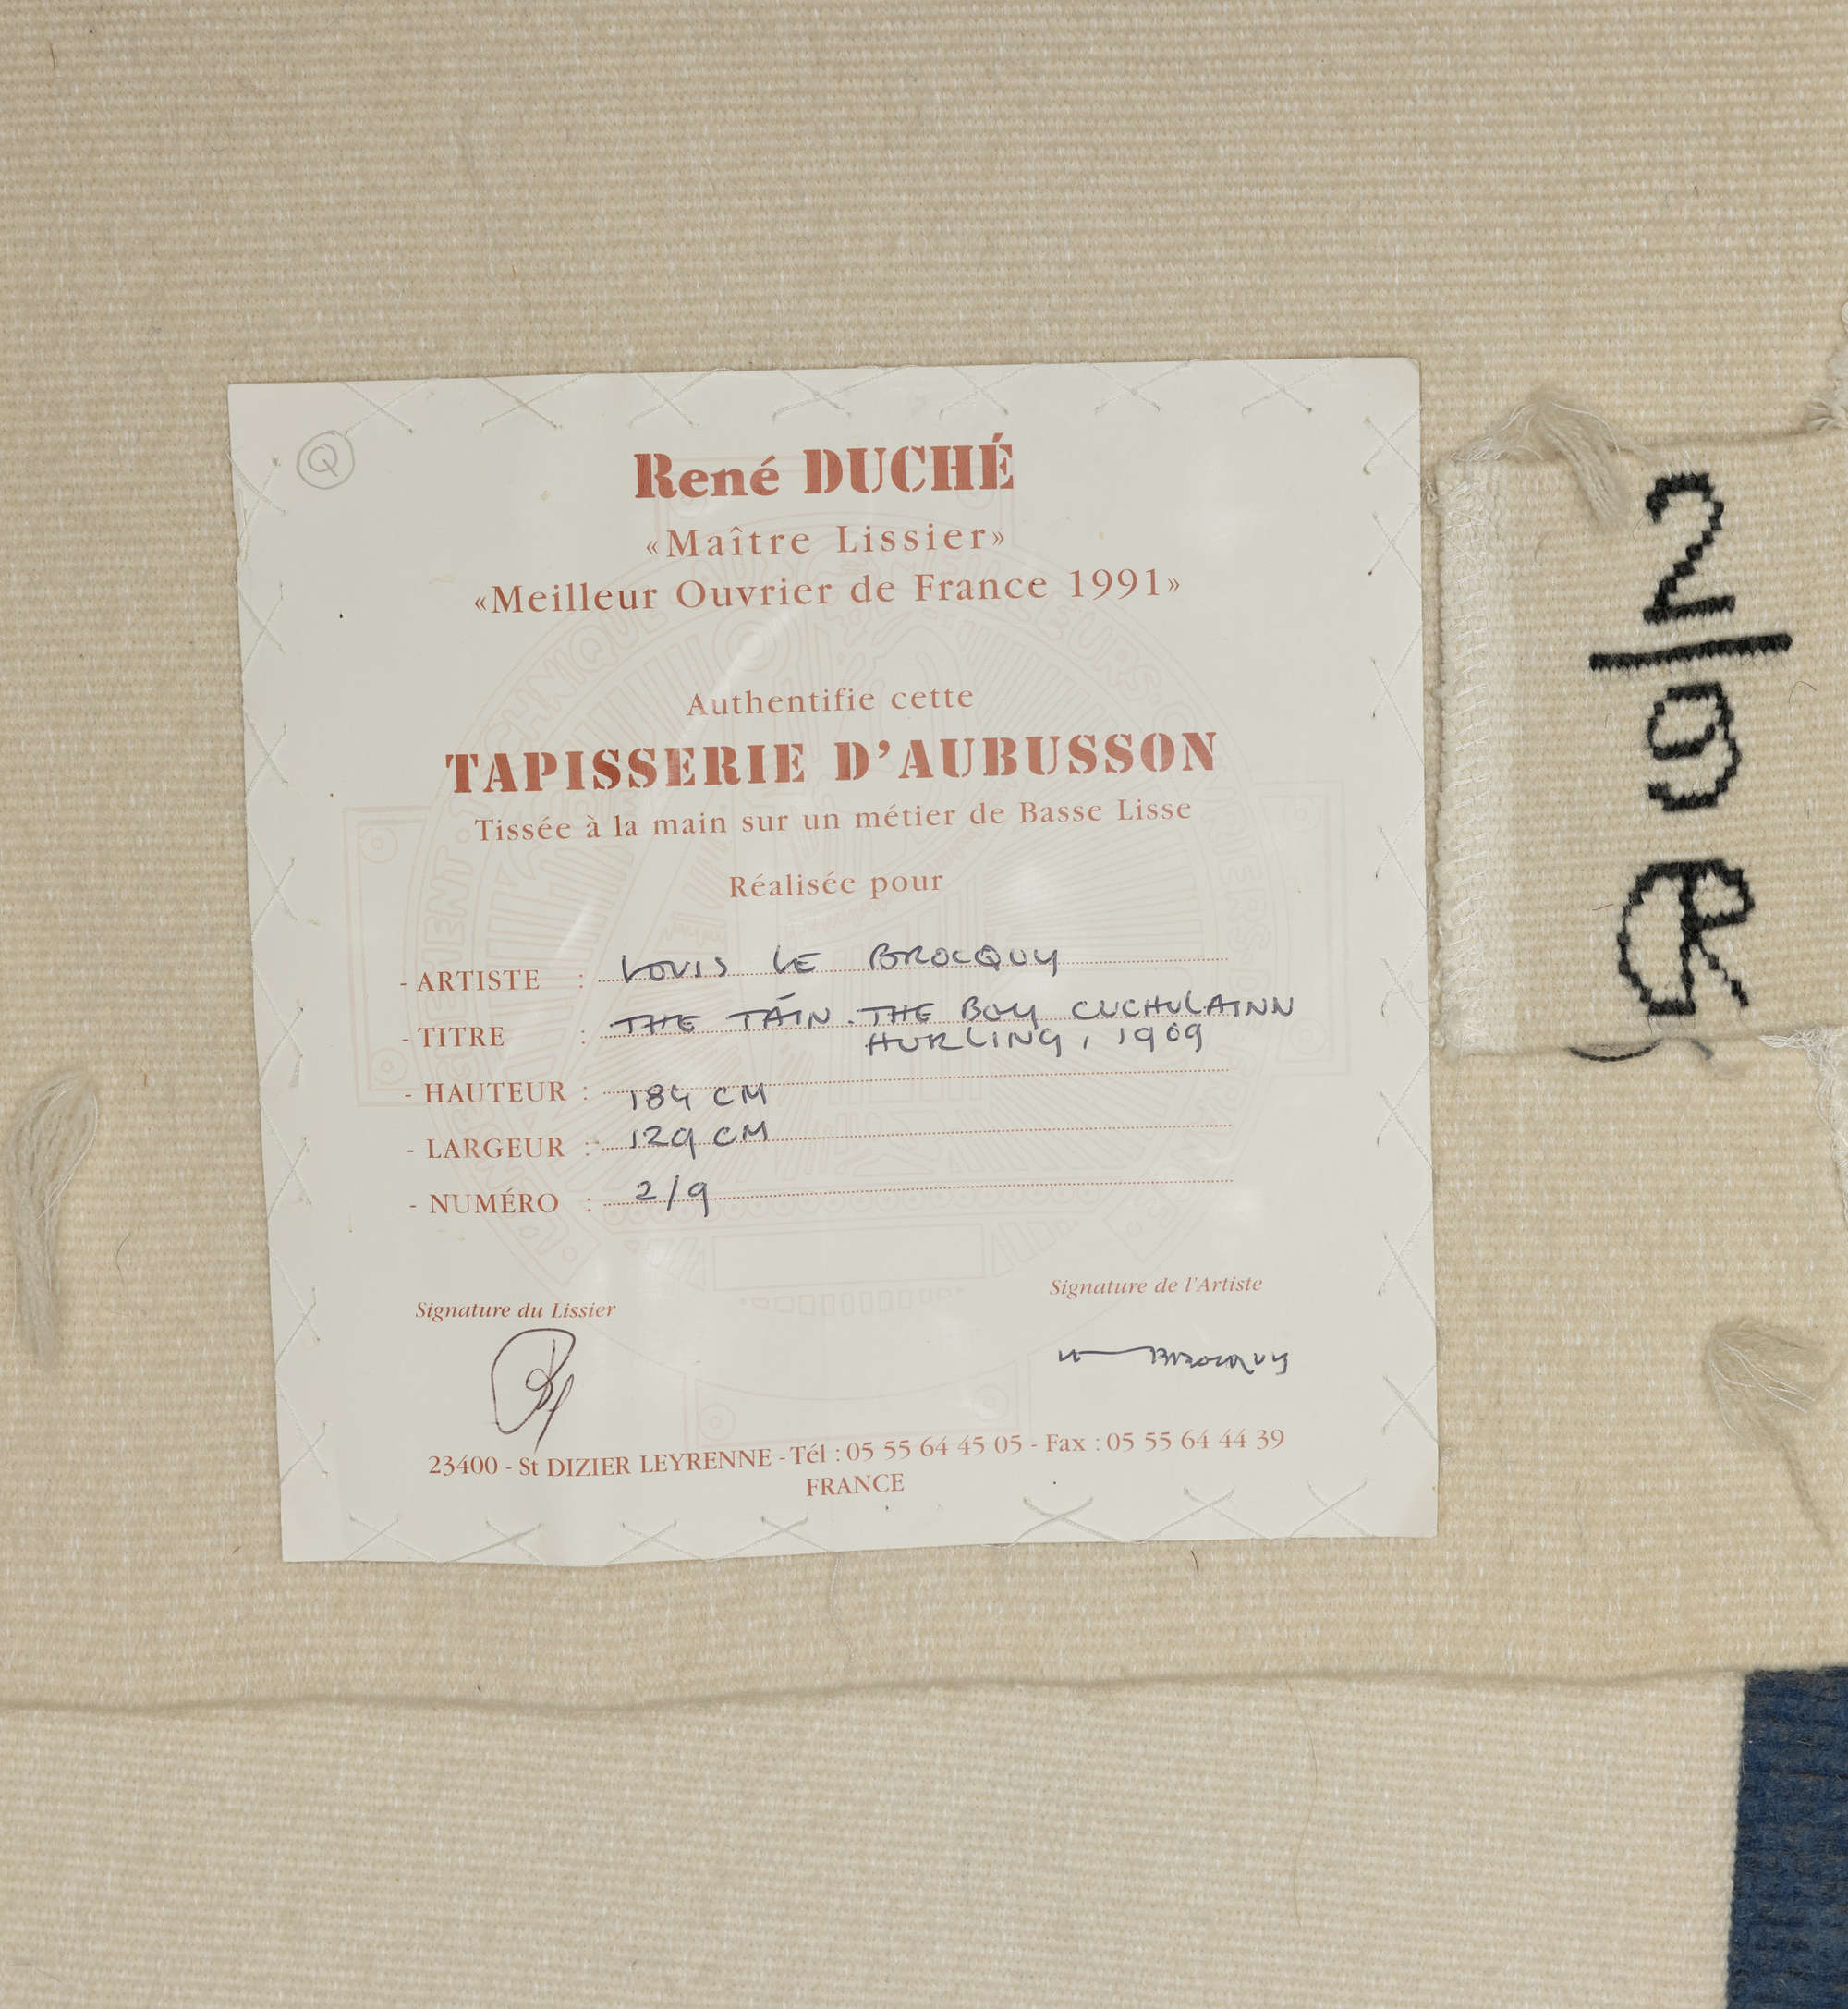 Q
René DUCHÉ
«Maître Lissier»
«Meilleur Ouvrier de France 1991»
Authentifie cette
TAPISSERIE D'AUBUSSON
Tissée à la main sur un métier de Basse Lisse
Réalisée pour
- ARTISTE : LOUIS LE BROCQUY
- TITRE : THE TÁIN. THE BOY CUCHULAINN
HURLING, 1969
- HAUTEUR : 184 CM
- LARGEUR : 129 CM
- NUMÉRO : 2/9
Signature du Lissier
Signature de l'Artiste
BROCQUY
23400 - St DIZIER LEYRENNE - Tél : 05 55 64 45 05 - Fax : 05 55 64 44 39
FRANCE
2/9